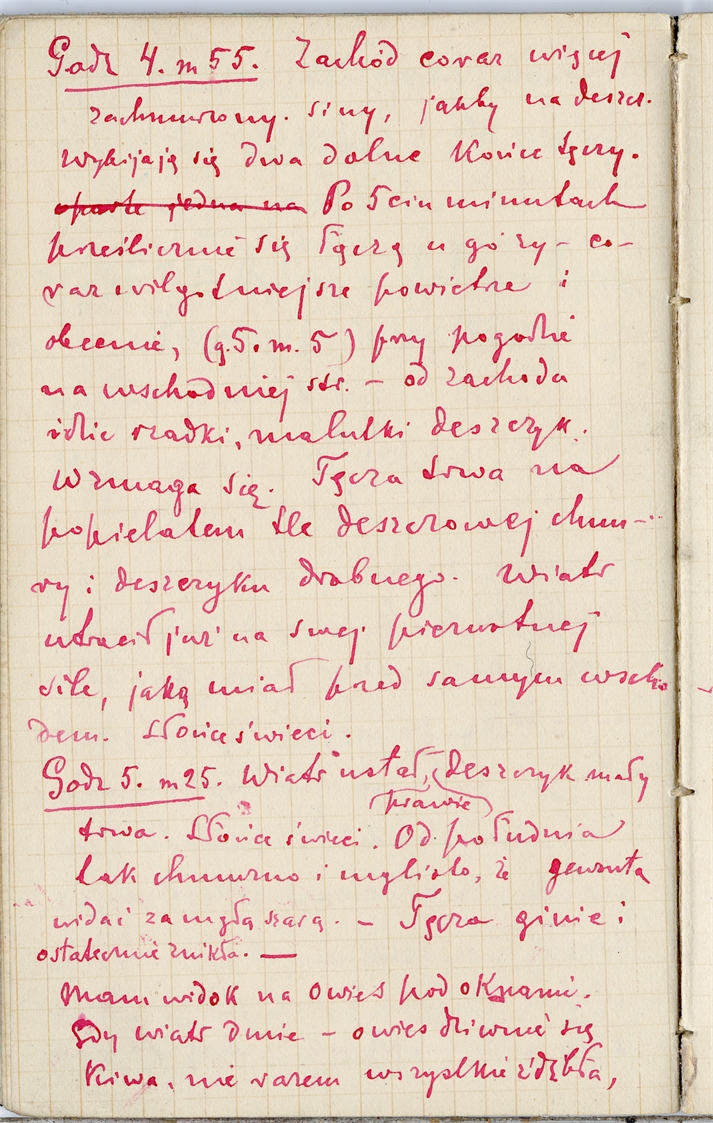 Godz 4. m 55. Zachód coraz więcej
zachmurzony. siny, jakby na deszcz.
Wybijają się dwa dolne końce tęczy.
oparte jedna na Po 5ciu minutach
prześlicznie się łączą u góry – co–
raz wilgotniejsze powietrze i
obecnie, (g. 5. m. 5) przy pogodzie
na wschodniej str. – od zachodu
idzie rzadki, malutki deszczyk.
Wzmaga się. Tęcza trwa na
popielatem tle deszczowej chmu–
ry i deszczyku drobnego. Wiatr
utracił już na swej pierwotnej
sile, jaką miał przed samym wscho
dem. Słońce świeci.
Godz 5. m 25. Wiatr ustał, (deszczyk mały
prawie)
trwa. Słońce świeci. Od południa
tak chmurno i mglisto, że gewonta
widać za mgłą szarą. – Tęcza ginie i
ostatecznie znikła. —
Mam widok na owies pod oknami.
Gdy wiatr dmie – owies dziwnie się
kiwa, nie razem wszystkie źdźbła,